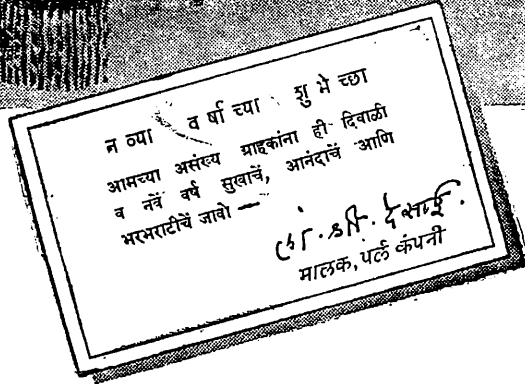 नव्या वर्षाच्या शुभेच्छा
आमच्या असंख्य ग्राहकांना ही दिवाळी
व नवें वर्ष सुखाचें, आनंदाचें आणि
भरभराटीचें जावो —
देसाई.
मालक, पर्ल कंपनी